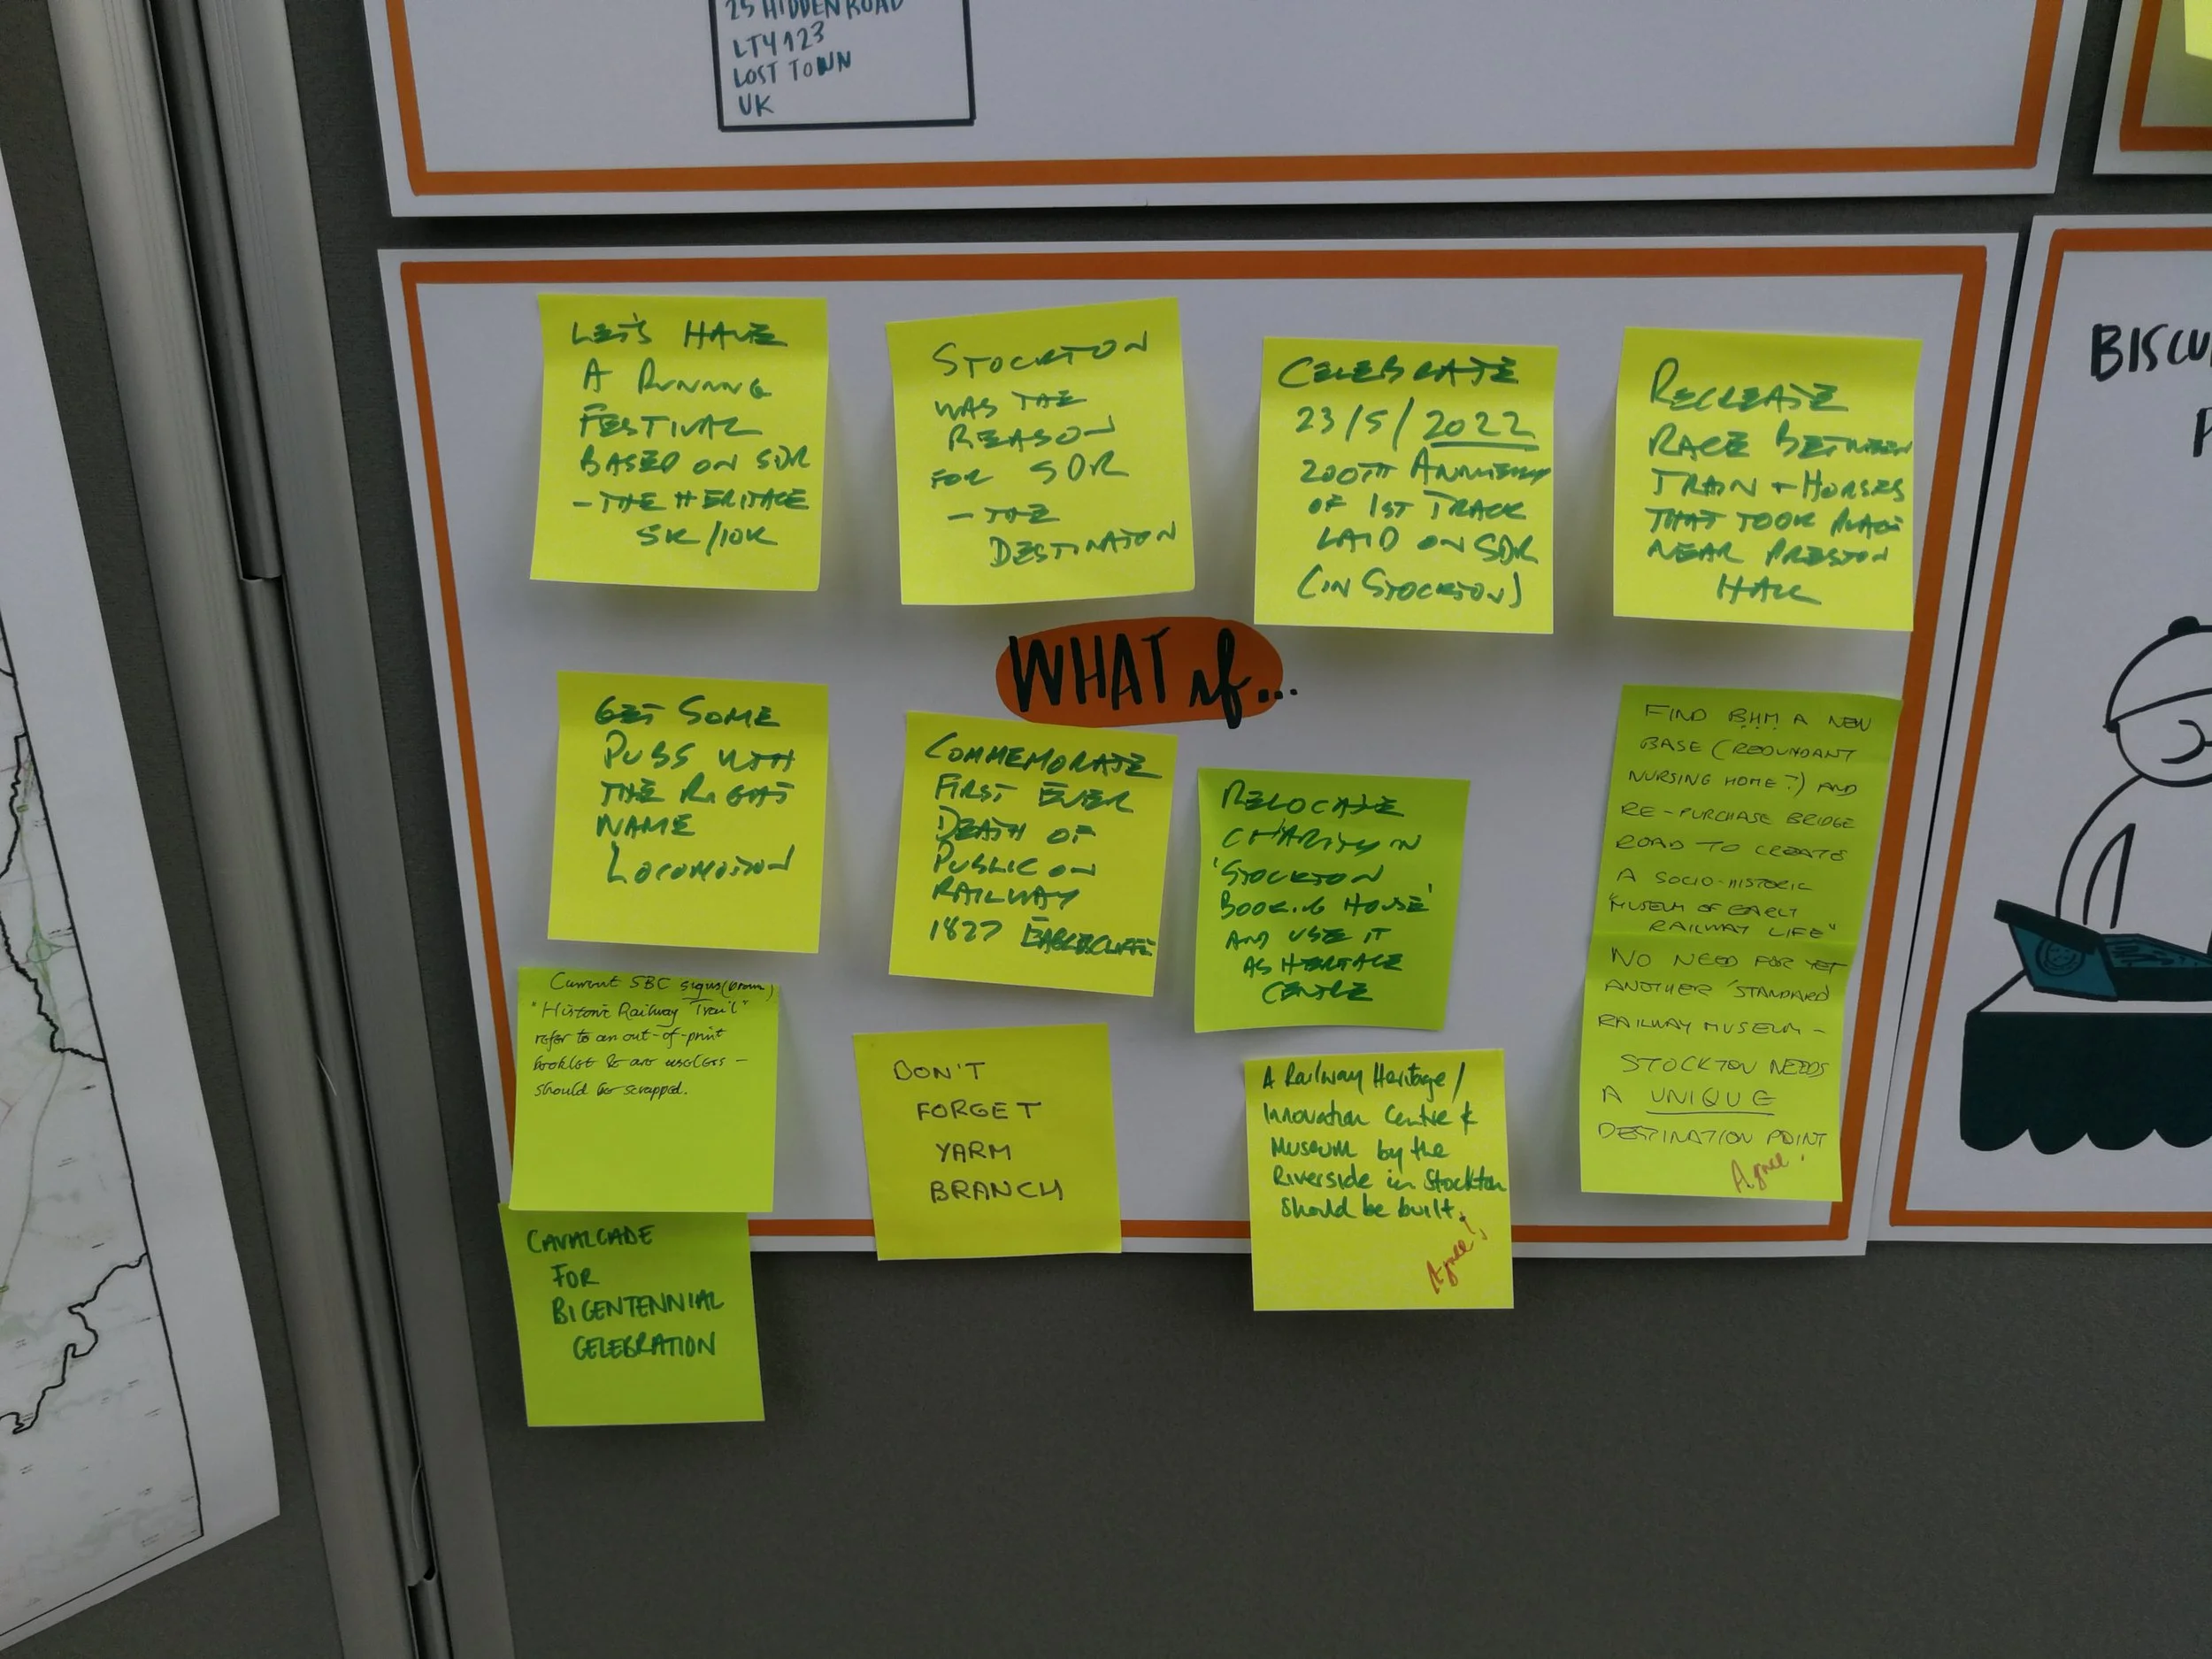 25 HIDDEN ROAD
LTY 123
LOST TOWN
UK
LET'S HAVE
A RUNNING
FESTIVAL
BASED ON SDR
- THE HERITAGE
5K/10K
STOCKTON
WAS THE
REASON
FOR SDR
- THE
DESTINATION
CELEBRATE
23/5/2022
200TH ANNIVERSARY
OF 1ST TRACK
LAID ON SDR
(IN STOCKTON)
RECREATE
RACE BETWEEN
TRAIN + HORSES
THAT TOOK PLACE
NEAR PRESTON
HALL
WHAT if...
GET SOME
PUBS WITH
THE RIGHT
NAME
LOCOMOTION
COMMEMORATE
FIRST EVER
DEATH OF
PUBLIC ON
RAILWAY
1827 EAGLESCLIFFE
RELOCATE
CHARITY IN
'STOCKTON
BOOKING HOUSE'
AND USE IT
AS HERITAGE
CENTRE
FIND BHM A NEW
BASE (REDUNDANT
NURSING HOME?) AND
RE-PURCHASE BRIDGE
ROAD TO CREATE
A SOCIO-HISTORIC
"MUSEUM OF EARLY
RAILWAY LIFE"
NO NEED FOR YET
ANOTHER 'STANDARD'
RAILWAY MUSEUM -
STOCKTON NEEDS
A UNIQUE
DESTINATION POINT
Agree!
Current SBC signs (brown)
"Historic Railway Trail"
refer to an out-of-print
booklet & are useless -
should be scrapped.
DON'T
FORGET
YARM
BRANCH
A Railway Heritage/
Innovation Centre &
Museum by the
Riverside in Stockton
should be built.
Agree!
CAVALCADE
FOR
BICENTENNIAL
CELEBRATION
BISCU